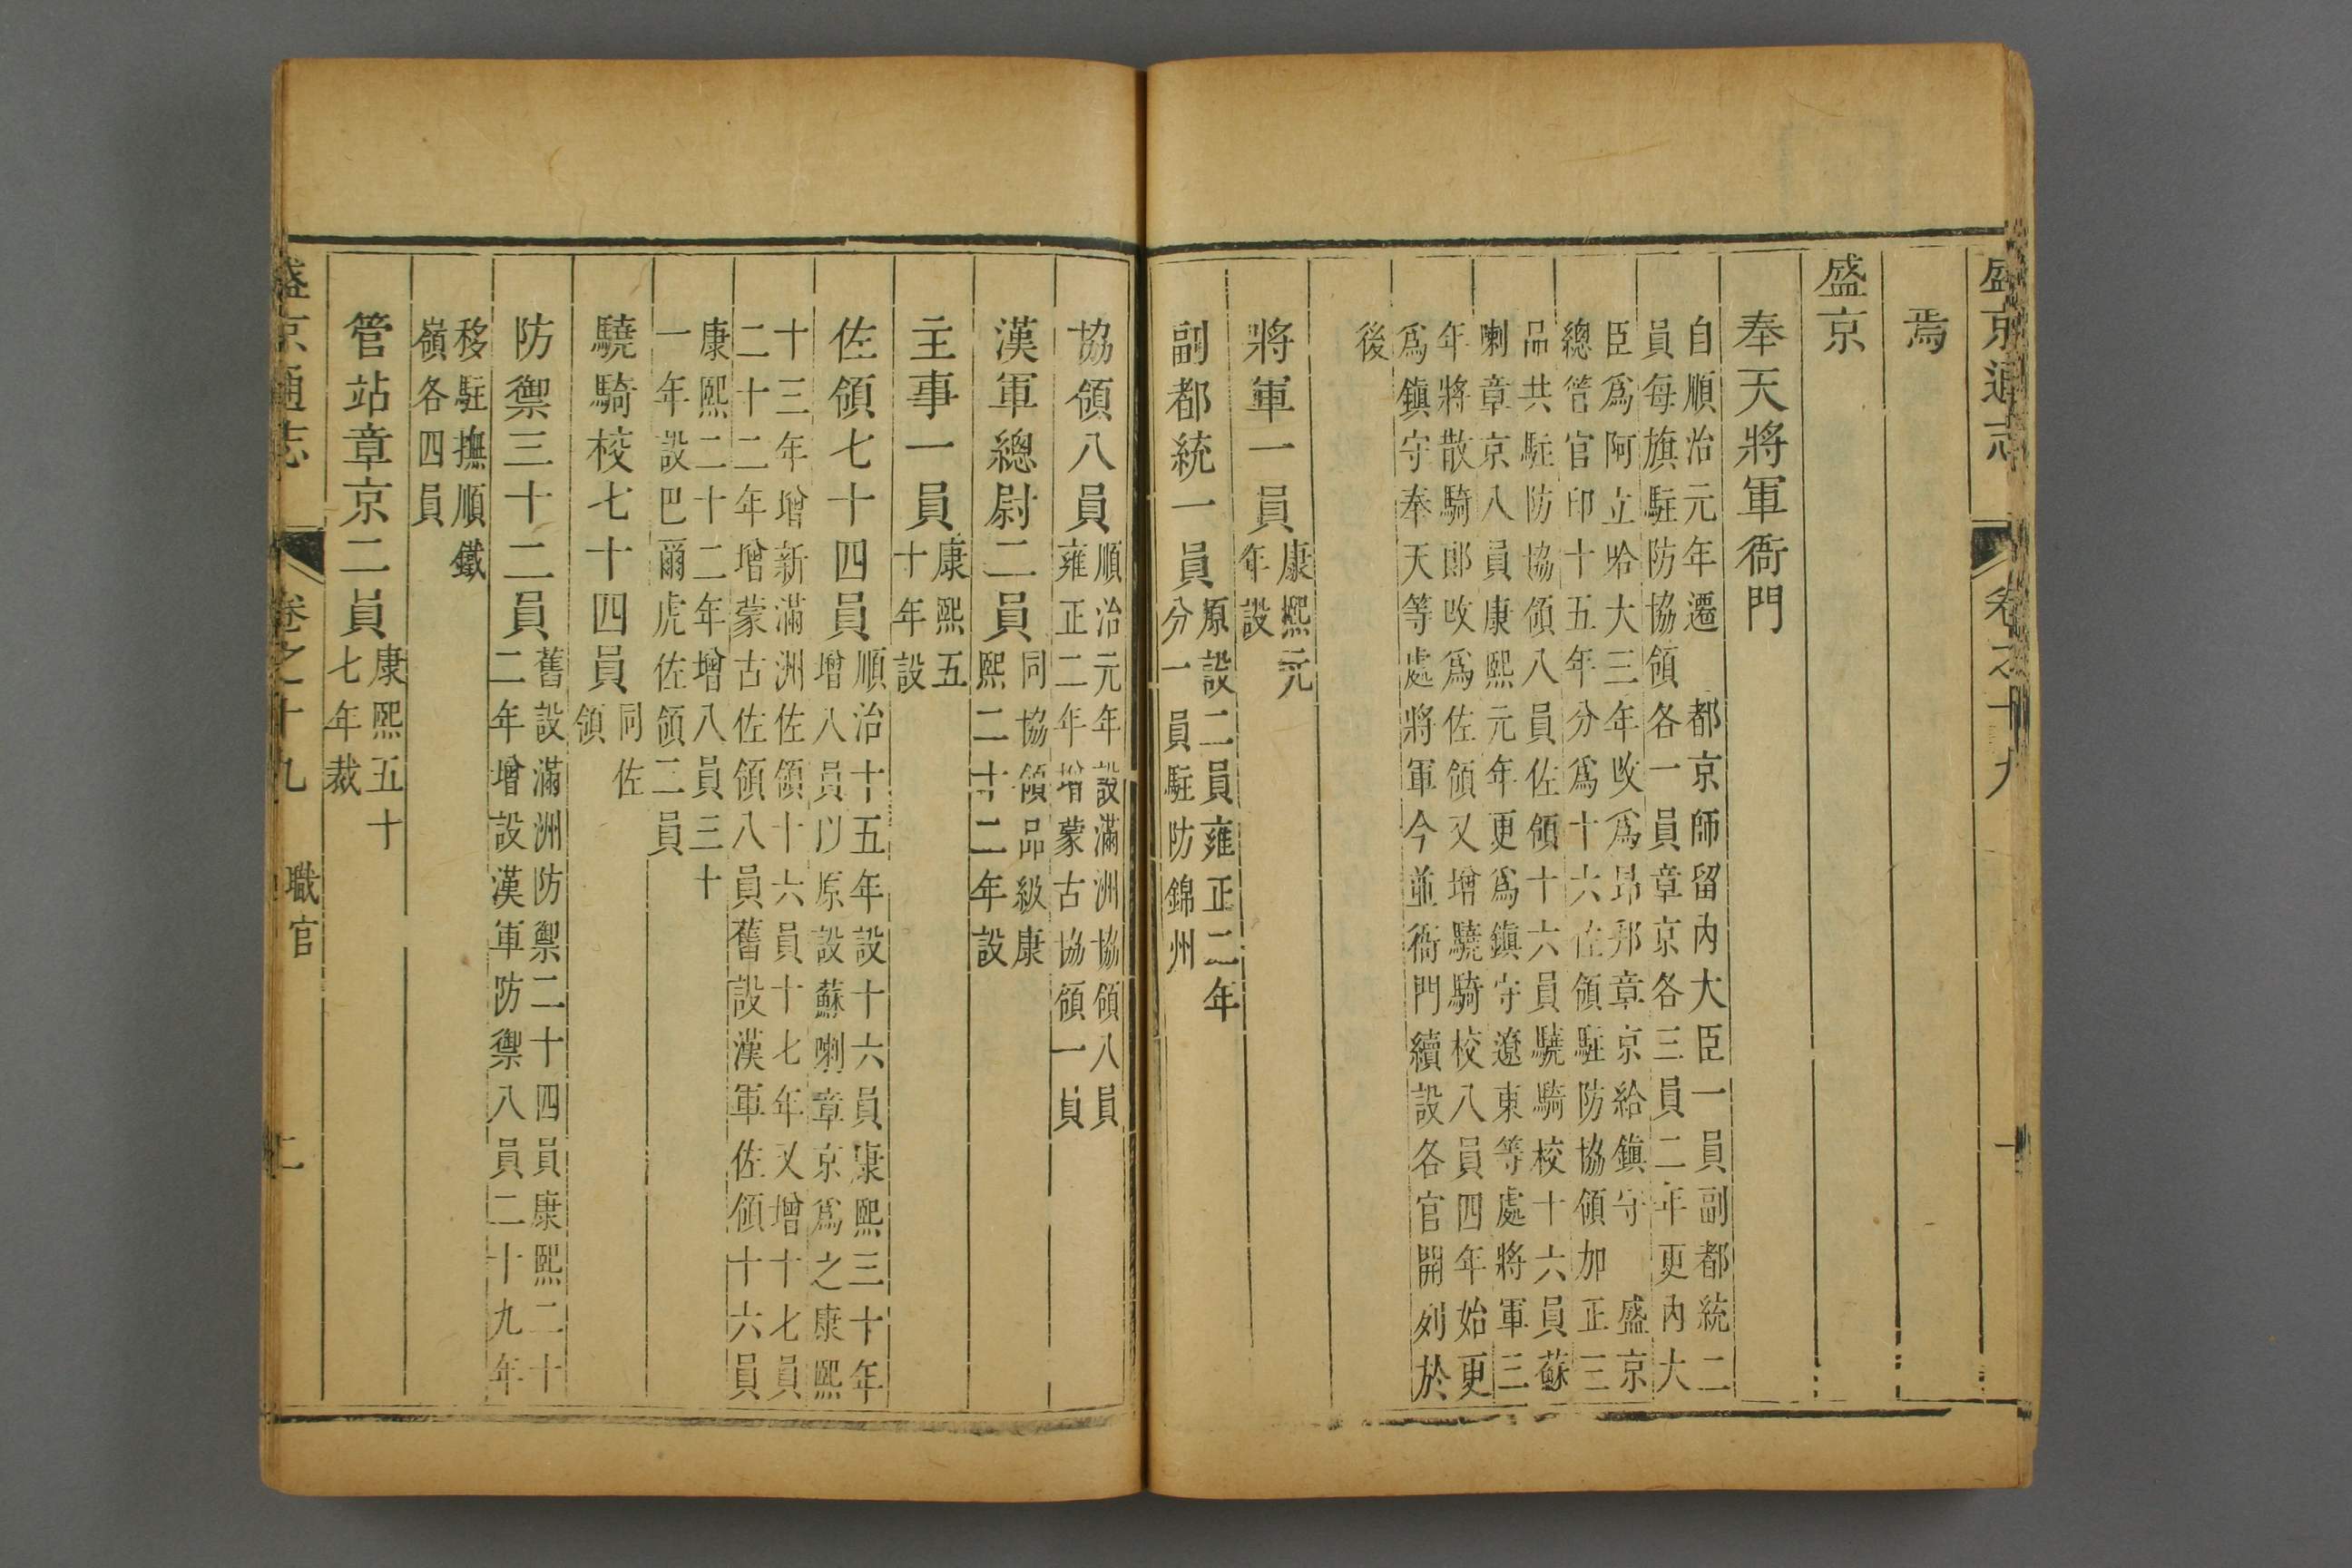 盛京通志 卷之十九 一
焉
盛京
奉天將軍衙門
自順治元年遷 都京師留內大臣一員副都統二
員每旗駐防協領各一員章京各三員二年更內大
臣爲阿立哈大三年改爲昂邦章京給鎮守 盛京
總管官印十五年分爲十六佐領駐防協領加正三
品共駐防協領八員佐領十六員驍騎校十六員蘇
喇章京八員康熙元年更爲鎮守遼東等處將軍三
年將散騎郎改爲佐領又增驍騎校八員四年始更
爲鎮守奉天等處將軍今並衙門續設各官開列於
後
將軍一員康熙元
年設
副都統一員原設二員雍正二年
分一員駐防錦州
協領八員順治元年設滿洲協領八員
雍正二年增蒙古協領一員
漢軍總尉二員同協領品級康
熙二十二年設
主事一員康熙五
十年設
佐領七十四員順治十五年設十六員康熙三十年
增八員以原設蘇喇章京爲之康熙
十三年增新滿洲佐領十六員十七年又增十七員
二十二年增蒙古佐領八員舊設漢軍佐領十六員
康熙二十二年增八員三十
一年設巴爾虎佐領二員
驍騎校七十四員同佐
領
防禦三十二員舊設滿洲防禦二十四員康熙二十
二年增設漢軍防禦八員二十九年
移駐撫順鐵
嶺各四員
管站章京二員康熙五十
七年裁
盛京通志 卷之十九 職官 二